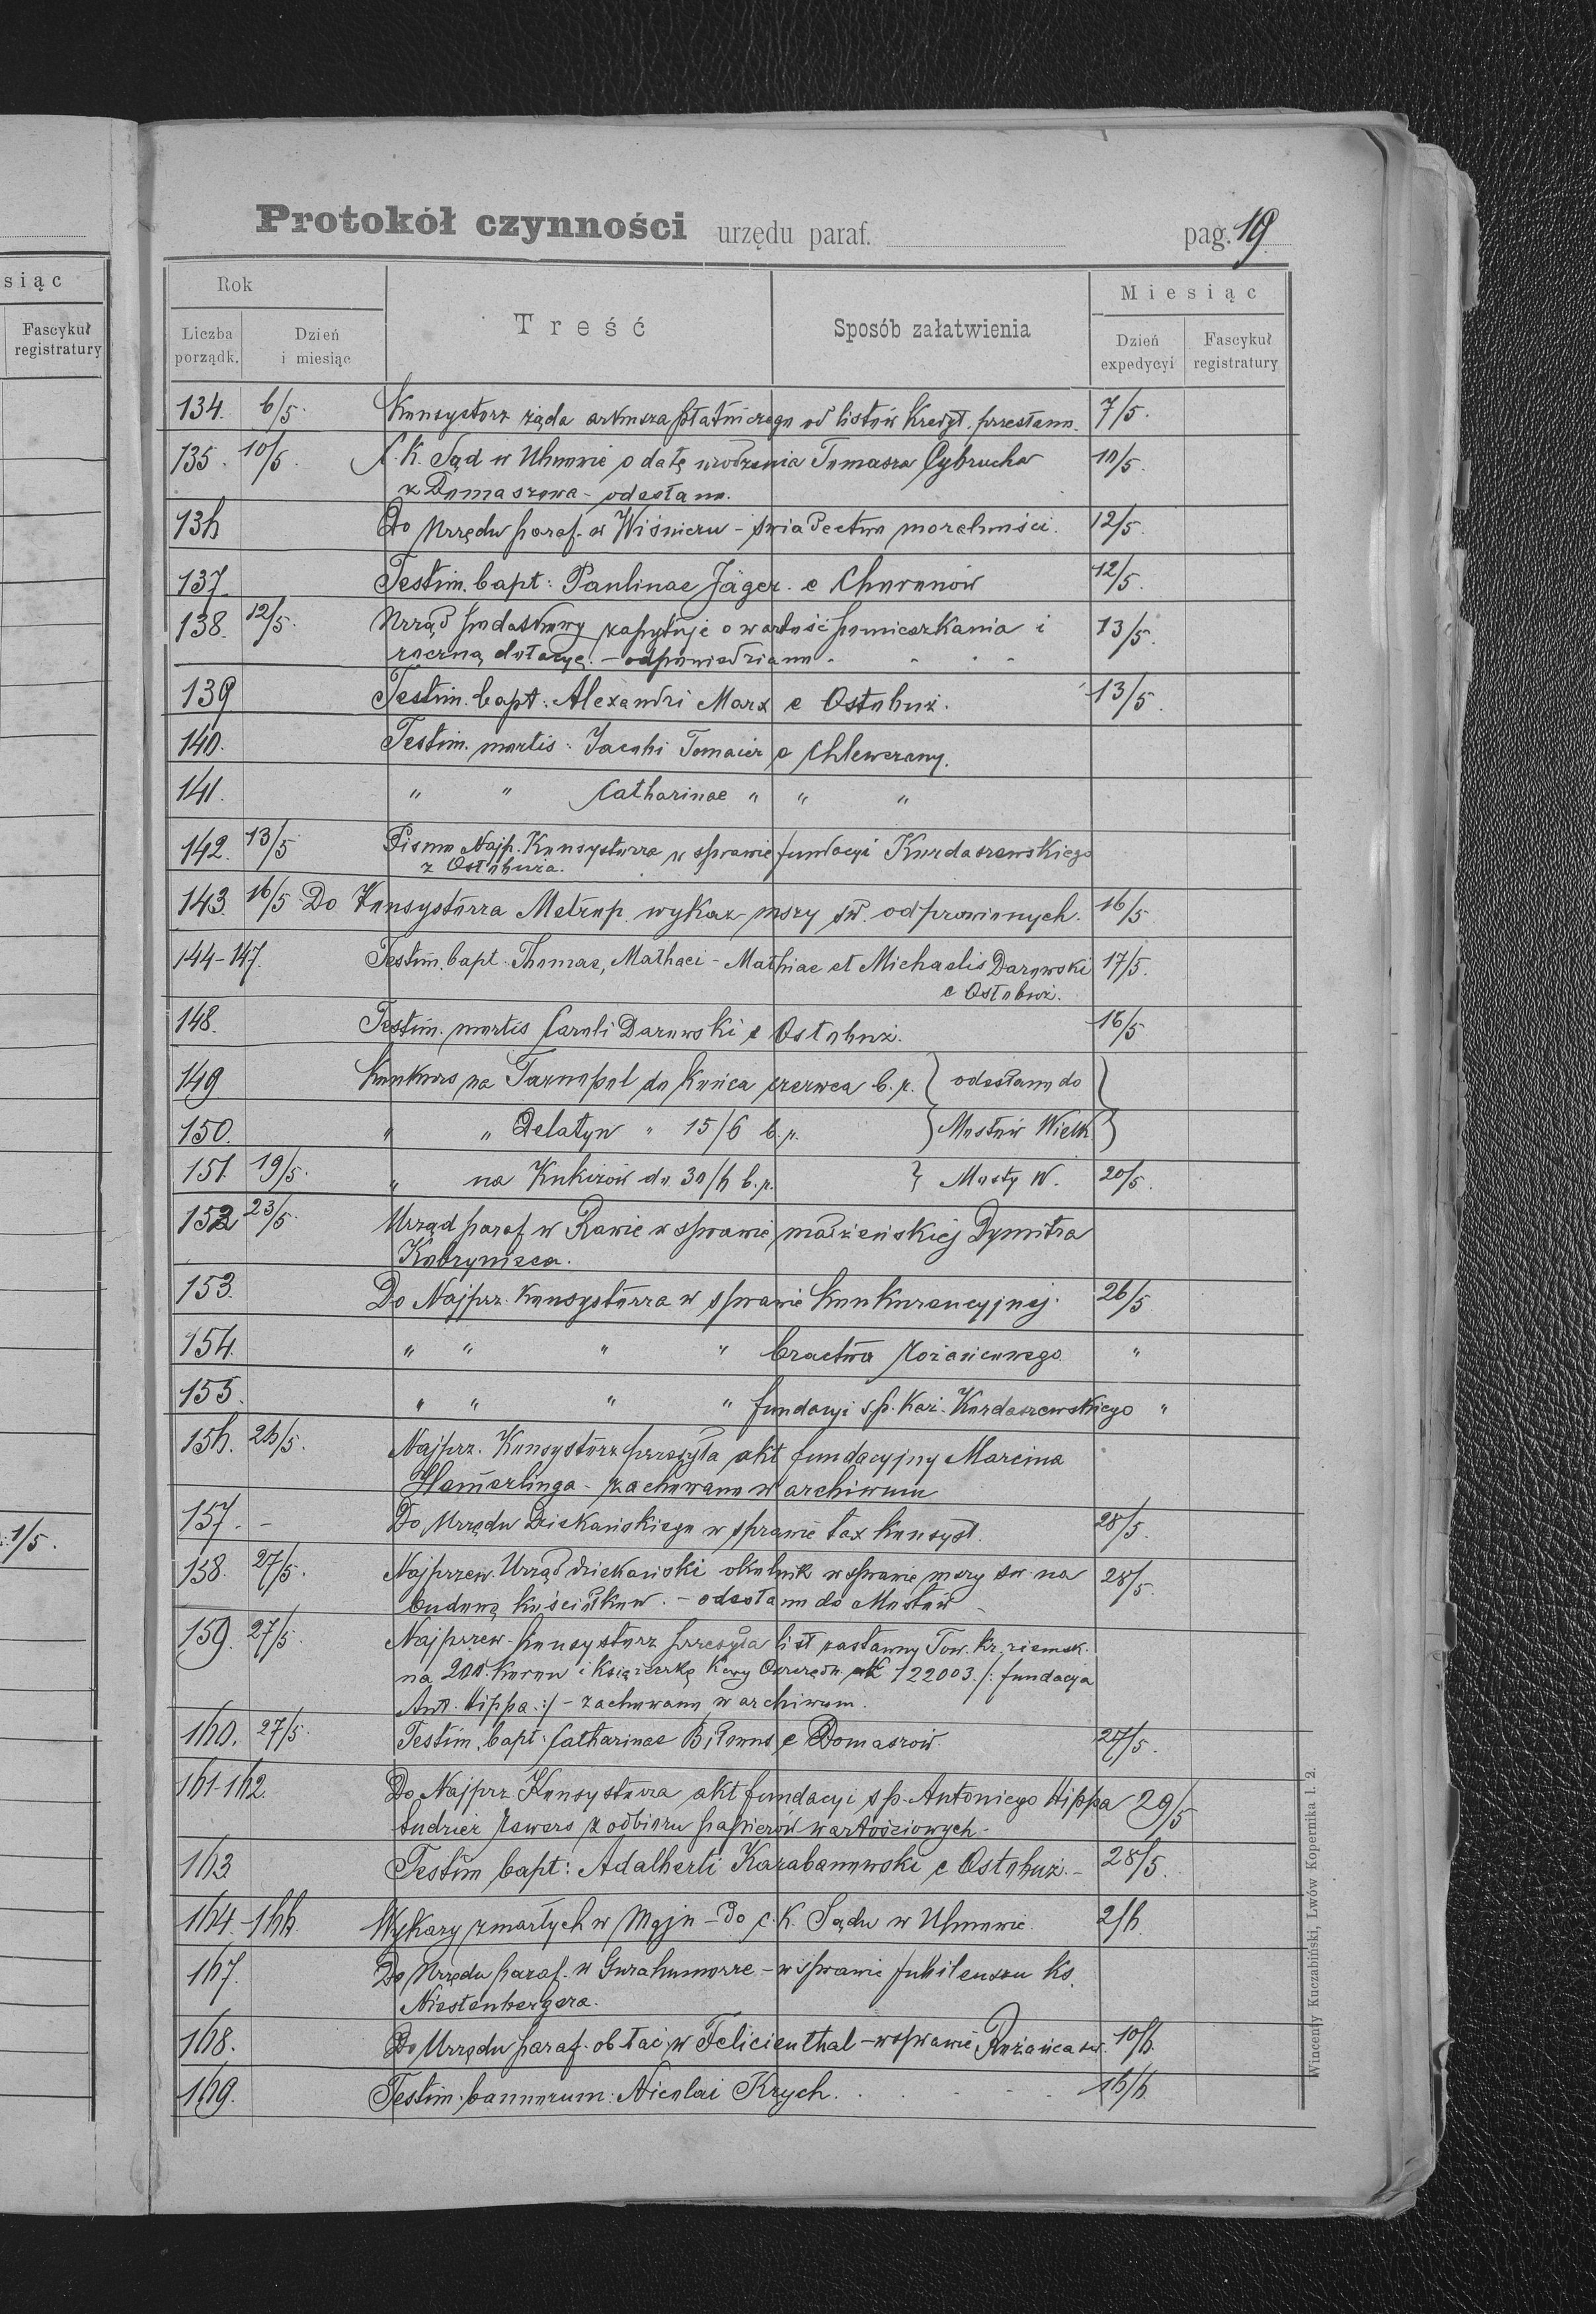 siąc
Fascykuł
registratury
1/5.
Protokół czynności urzędu paraf. pag. 19
Rok
Miesiąc
Liczba
porządk.
Dzień
i miesiąc
Treść
Sposób załatwienia
Dzień
expedycyi
Fascykuł
registratury
134. 6/5. Konsystorz żąda arkusza płatniczego od listów kredyt. przesłano. 7/5.
135. 10/5. C. K. Sąd w Uhnowie o datę urodzenia Tomasza Cybrucha 10/5.
z Domaszowa - odesłano.
136 Do Urzędu paraf. w Wiśniczu - świadectwo moralności. 12/5.
137 Testim. bapt: Paulinae Jäger. e Choronów 12/5.
138. 12/5. Urząd podatkowy zapytuje o wartość pomieszkania i 13/5.
roczną dotacyę. - odpowiedziano.
139 Testim. bapt: Alexandri Marx e Ostobuż. 13/5.
140. Testim. mortis: Jacobi Tomaier e Chlewczany.
141. " " Catharinae " " "
142. 13/5 Pismo Najp. Konsystorza w sprawie fundacyi Kurdaszewskiego
z Ostobuża.
143. 16/5 Do Konsystorza Metrop. wykaz mszy św. odprawionych. 16/5.
144-147. Testim. bapt. Thomae, Mathaei - Mathiae et Michaelis Darowski 17/5.
e Ostobuż.
148. Testim. mortis Caroli Darowski e Ostobuż. 16/5
149 Konkurs na Tarnopol do końca czerwca b. r. } odesłano do }
150. " " Delatyn " 15/6 b. r. } Mostów Wielk }
151. 19/5. " na Kukizów do 30/6 b. r. } Mosty W. 20/5.
152 23/5. Urząd paraf. w Rawie w sprawie małżeńskiej Dymitra
153. Do Najprz. Konsystorza w sprawie konkurencyjnej. 26/5
154. " " " " bractwa różańcowego "
155. " " " " fundacyi ś.p. Kaz. Kurdaszewskiego "
156. 26/5. Najprz. Konsystorz przesyła akt fundacyjny Marcina
Hamerlinga - zachowano w archiwum
157. - Do Urzędu Dziekańskiego w sprawie tax konsyst. 28/5.
158. 27/5. Najprzew. Urząd dziekański okulnik w sprawie mszy św. na 28/5.
budowę kościółków. - odesłano do Mostów -
159. 27/5. Najprzew. Konsystorz przesyła list zastawny Tow. kr. ziemsk.
na 200 koron i książeczkę Kasy Oszczędn. 122003 /: fundacja
Ant. Hippa :/ - zachowano w archiwum.
160. 27/5. Testim. bapt: Catharinae e Domaszów. 27/5.
161-162. Do Najprz. Konsystorza akt fundacyi ś p. Antoniego Hippa 29/5
tudzież rewers z odbioru papierów wartościowych -
163 Testim bapt: Adalberti Karabanowski e Ostobuż. - 28/5.
164.-166. Wykazy zmarłych w Maju - do c. K. Sądu w Uhnowie. 2/6.
167. Do Urzędu paraf. w Gurahumorze - w sprawie Jubileuszu ks.
Niestenbergera.
168. Do Urzędu paraf. ob łac. w Felicienthal - w sprawie Różańca św. 10/6.
169. Testim. bannorum: Nicolai Krych. 16/6.
Wincenty Kuczabiński, Lwów Kopernika l. 2.